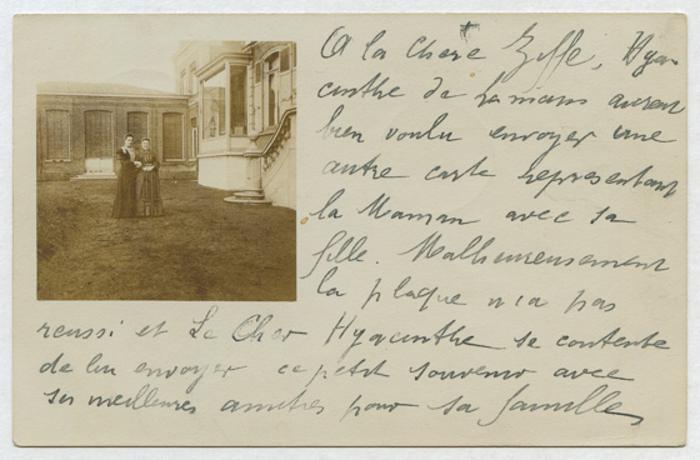 A la Chere Ziffe, Hya-
cinthe de Lemans aurait
bien voulu envoyer une
autre carte representant
la Maman avec sa
fille. Malheureusement
la plaque n'a pas
reussi et Le Cher Hyacinthe se contente
de lui envoyer ce petit souvenir avec
ses meilleures amities pour sa famille